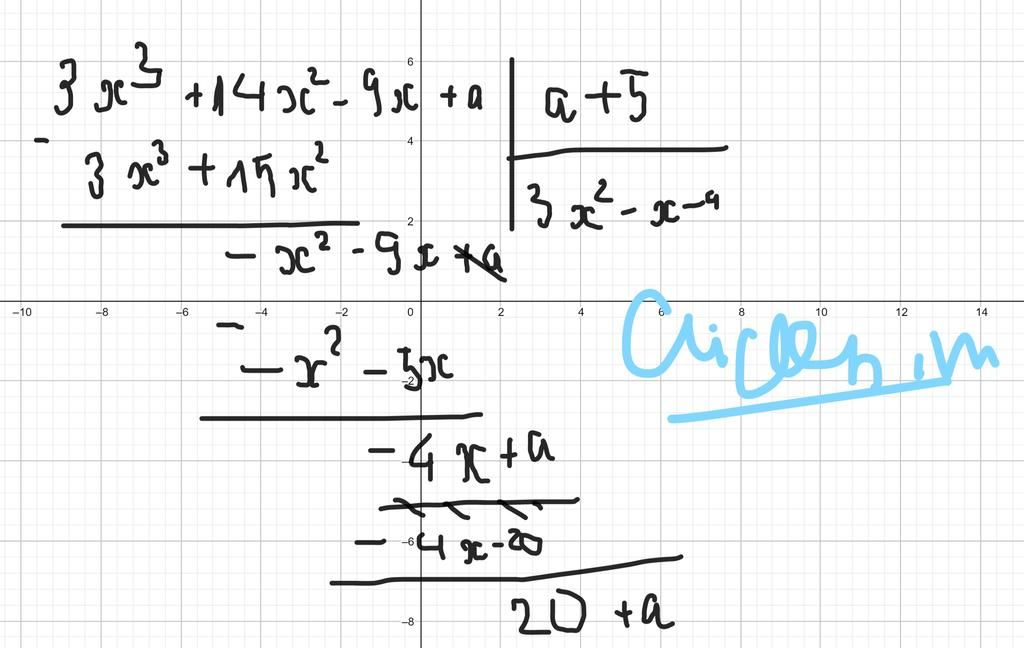 3x³ + 14x² - 9x + a | a + 5
- 3x³ + 15x² | 3x² - x - 4
- x² - 9x + a
-
- x² - 5x
- 4x + a
- 4x - 20
20 + a
-10 -8 -6 -4 -2 0 2 4 6 8 10 12 14
6
4
2
-2
-4
-6
-8